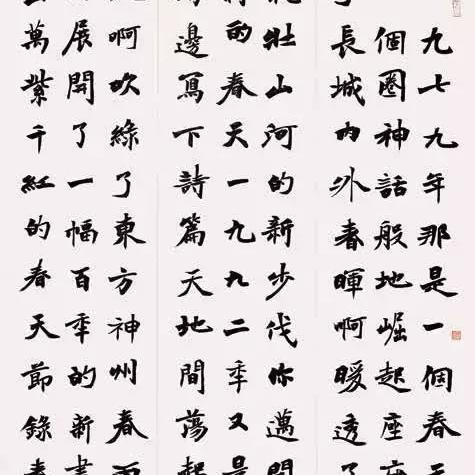 九七九年那是一個春天
個圈神話般地崛起座座
長城内外春暉啊暖透了
壯山河的新步伐你邁開
的春天一九九二年又是
邊寫下詩篇天地間蕩起
啊吹綠了東方神州春雨
展開了一幅百年的新畫
萬紫千紅的春天節錄春